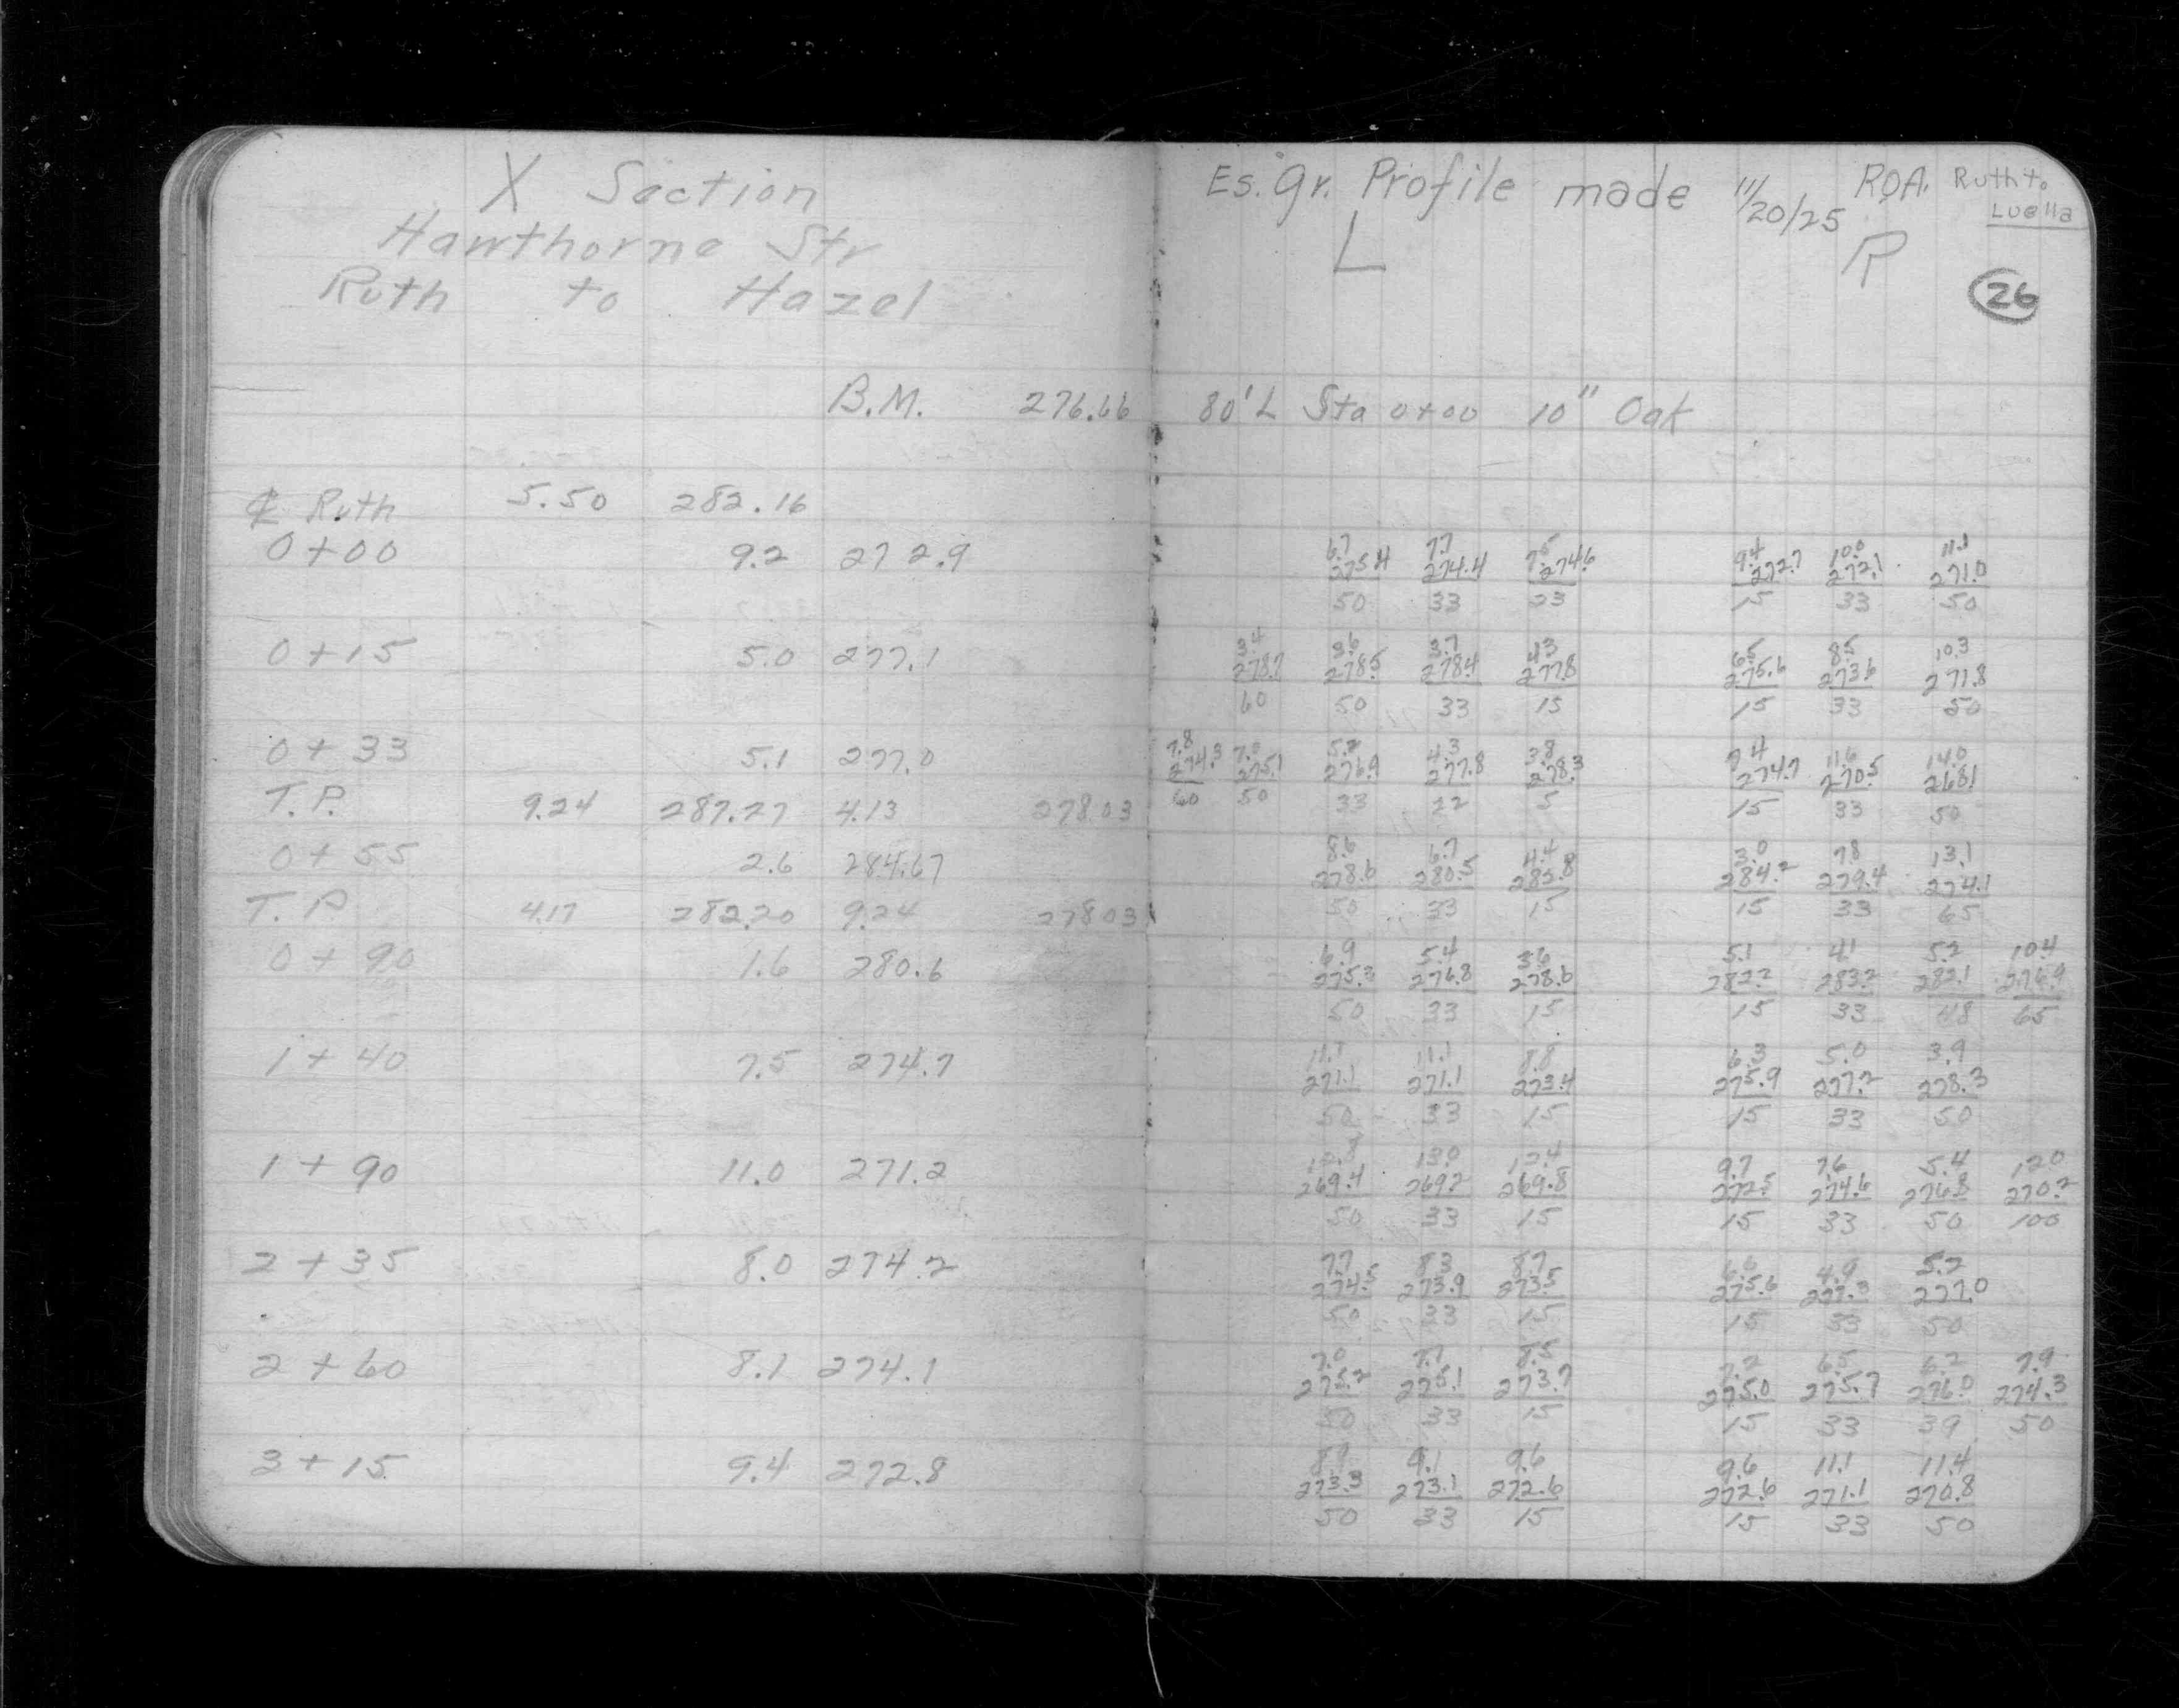 X Section
Hawthorne Str
Ruth to Hazel
B.M. 276.66
℄ Ruth 5.50 282.16
0+00 9.2 272.9
0+15 5.0 277.1
0+33 5.1 277.0
T.P. 9.24 287.27 4.13 278.03
0+55 2.6 284.67
T.P 4.17 282.20 9.24 278.03
0+90 1.6 280.6
1+40 7.5 274.7
1+90 11.0 271.2
2+35 8.0 274.2
2+60 8.1 274.1
3+15 9.4 272.8
Es. gr. Profile made 11/20/25 R.O.A. Ruth to
Luella
L R
26
80' L Sta 0+00 10" Oak
6.7 7.7 7.5 9.4 10.0 11.1
275.4 274.4 274.6 272.7 272.1 271.0
50 33 23 15 33 50
3.4 3.6 3.7 4.3 6.5 8.5 10.3
278.7 278.5 278.4 277.8 275.6 273.6 271.8
60 50 33 15 15 33 50
7.8 7.0 5.2 4.3 3.8 7.4 11.6 14.0
274.3 275.1 276.9 277.8 278.3 274.7 270.5 268.1
60 50 33 22 5 15 33 50
8.6 6.7 4.4 3.0 7.8 13.1
278.6 280.5 282.8 284.2 279.4 274.1
50 33 15 15 33 65
6.9 5.4 3.6 5.1 4.1 5.2 10.4
275.3 276.8 278.6 282.2 283.2 282.1 276.9
50 33 15 15 33 48 65
11.1 11.1 8.8 6.3 5.0 3.9
271.1 271.1 273.4 275.9 277.2 278.3
50 33 15 15 33 50
12.8 13.0 12.4 9.7 7.6 5.4 12.0
269.4 269.2 269.8 272.5 274.6 276.8 270.2
50 33 15 15 33 50 100
7.7 8.3 8.7 6.6 4.9 5.2
274.5 273.9 273.5 275.6 277.3 277.0
50 33 15 15 33 50
7.0 7.1 8.5 7.2 6.5 6.2 7.9
275.2 275.1 273.7 275.0 275.7 276.0 274.3
50 33 15 15 33 39 50
8.9 9.1 9.6 9.6 11.1 11.4
273.3 273.1 272.6 272.6 271.1 270.8
50 33 15 15 33 50